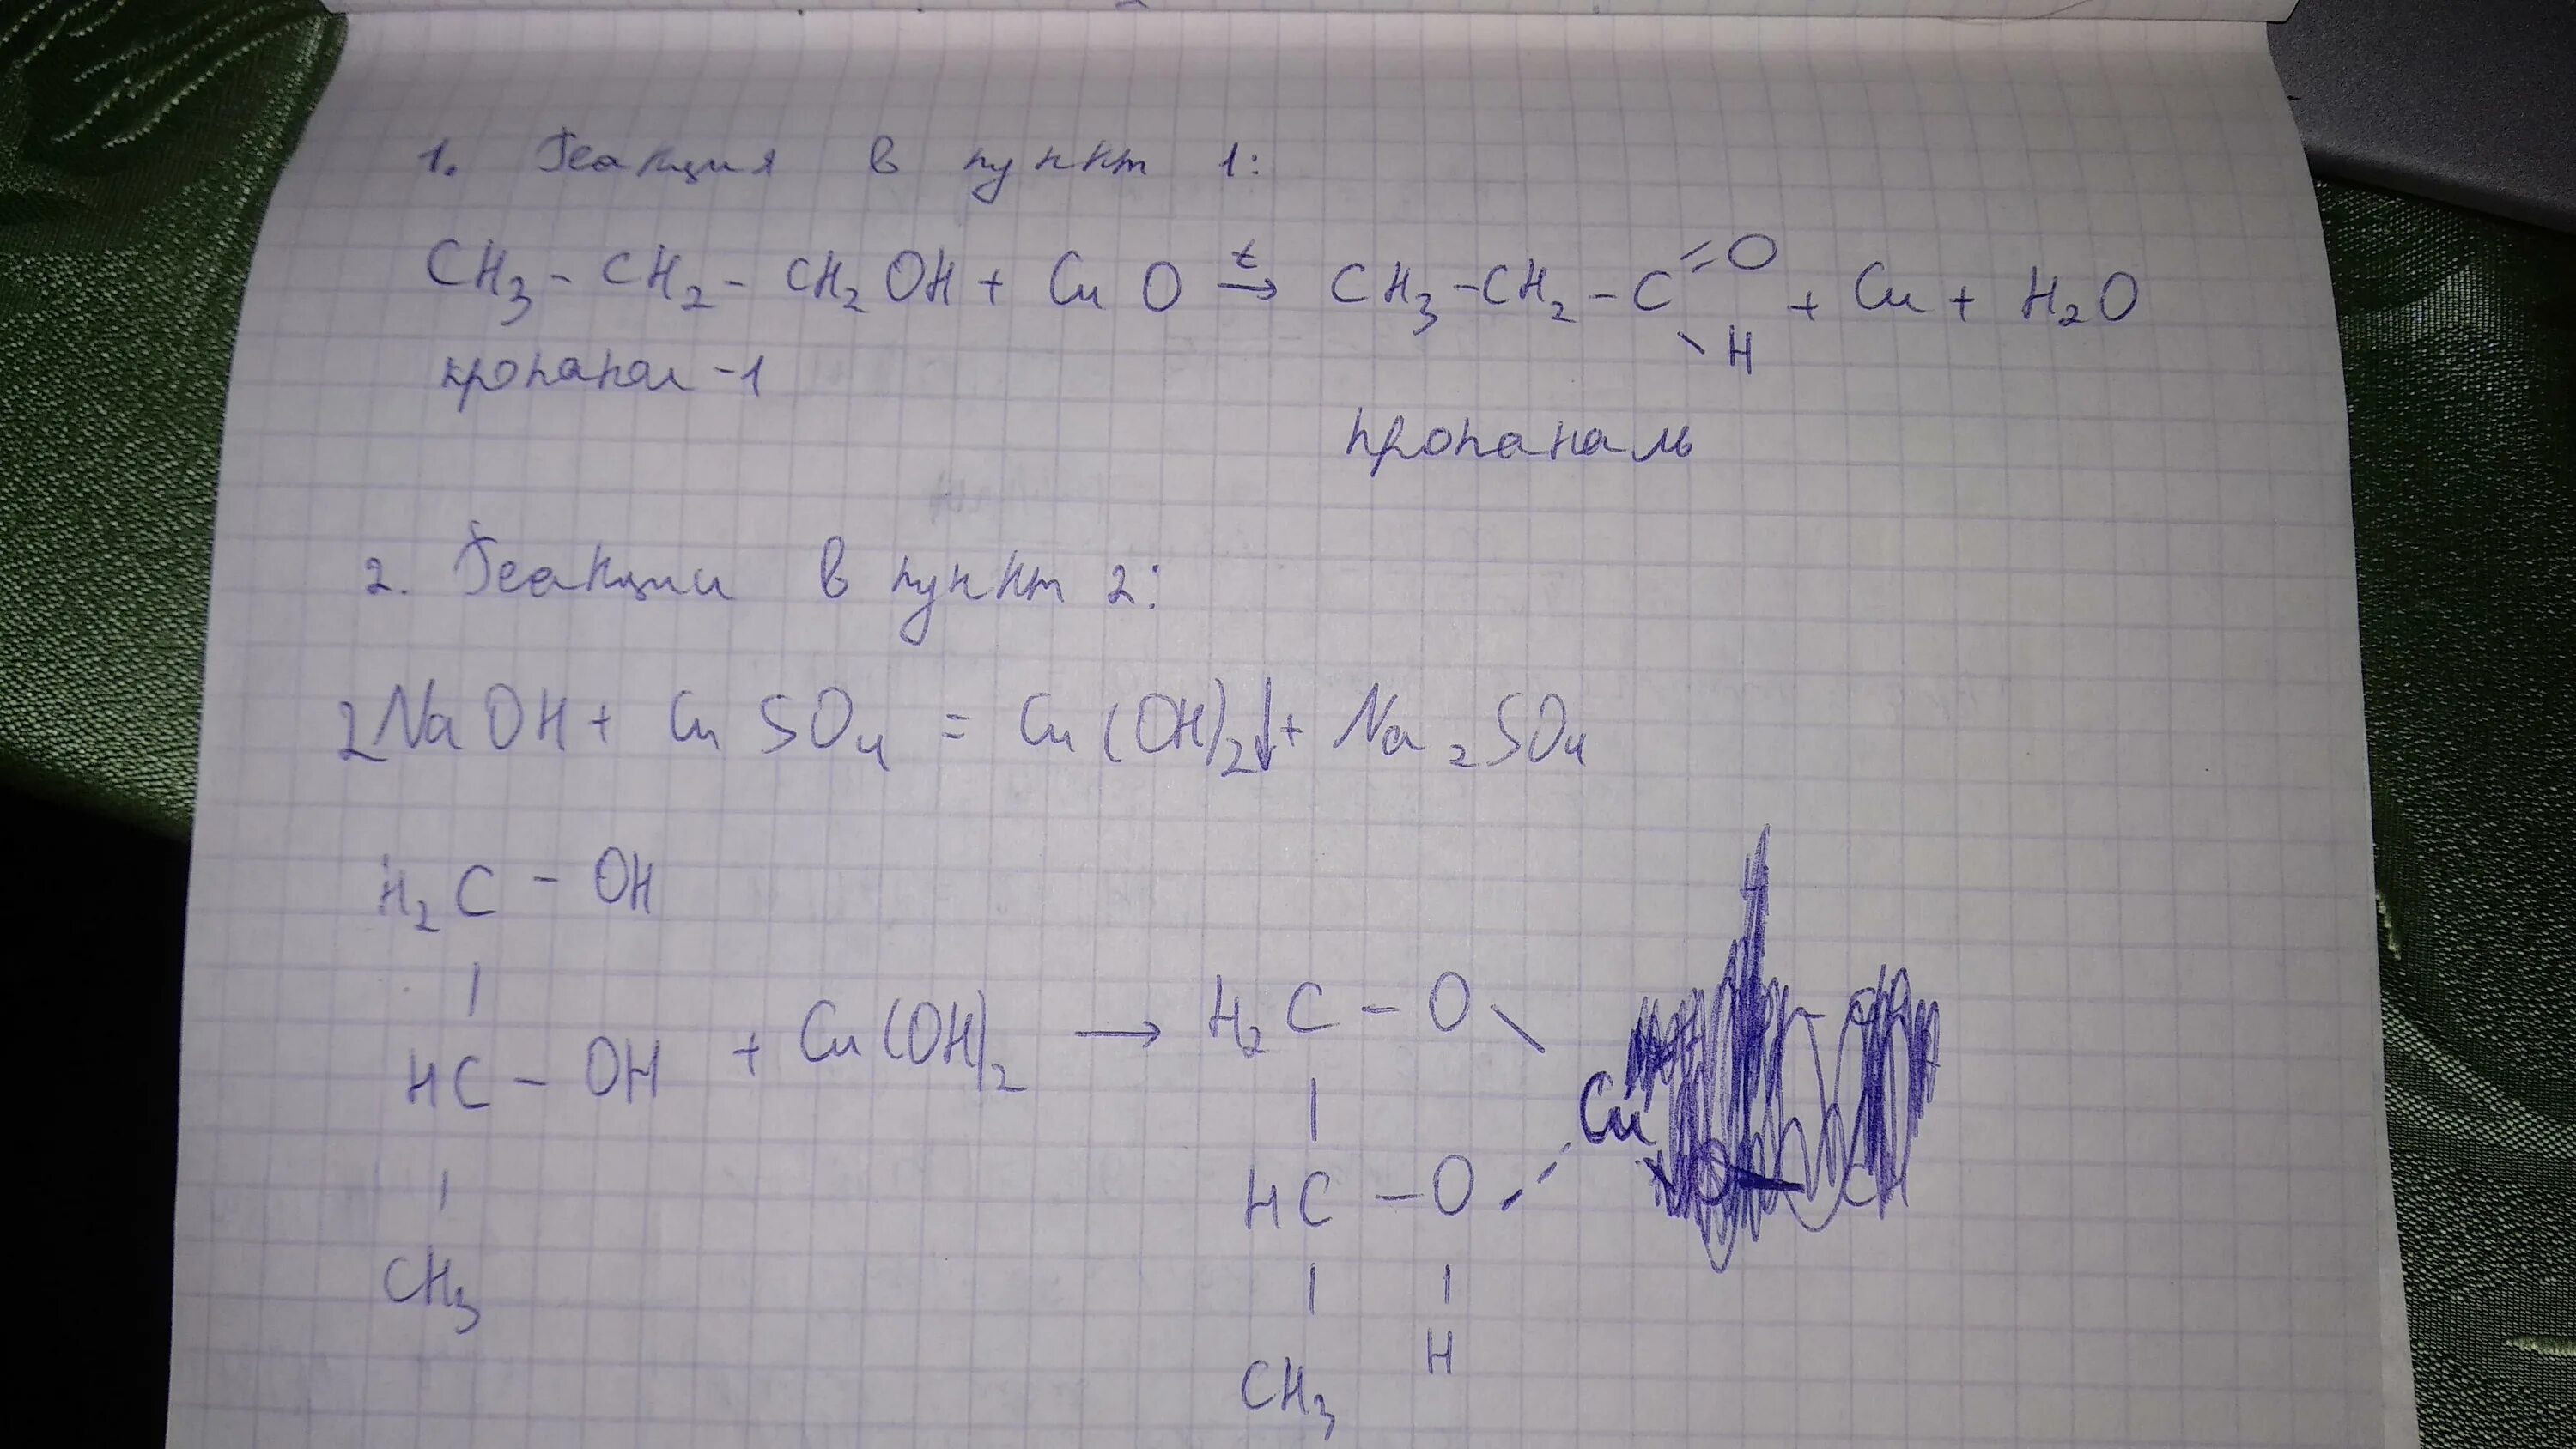 1. Реакция в пункт 1:
CH₃ - CH₂ - CH₂OH + CuO →ᵗ CH₃ - CH₂ - C =O + Cu + H₂O
\ H
пропанол -1
пропаналь
2. Реакции в пункт 2:
2NaOH + CuSO₄ = Cu(OH)₂↓ + Na₂SO₄
H₂C - OH
|
HC - OH + Cu(OH)₂ → H₂C - O \
| Cu
CH₃ HC - O
| |
CH₃ H